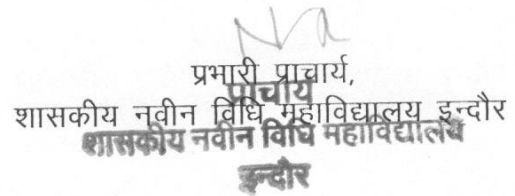 प्रभारी प्राचार्य,
प्राचार्य
शासकीय नवीन विधि महाविद्यालय इन्दौर
शासकीय नवीन विधि महाविद्यालय
इन्दौर